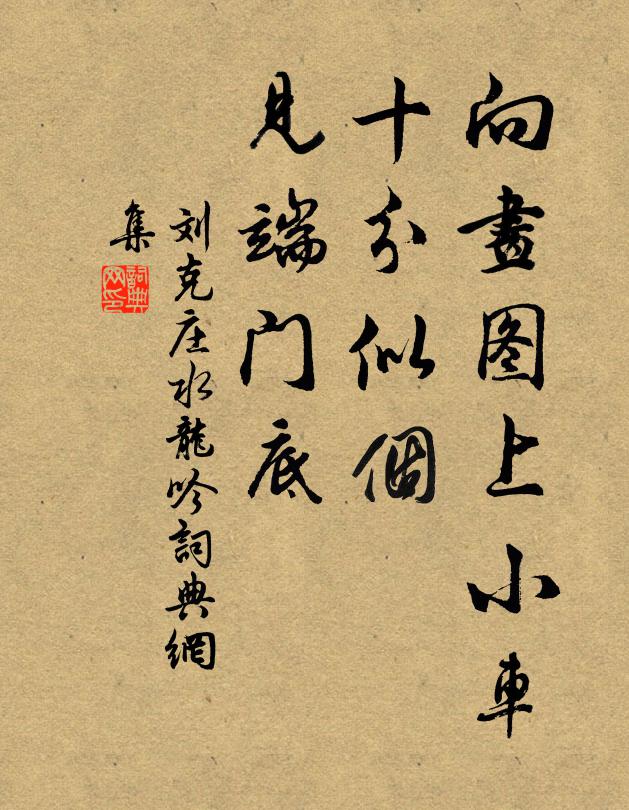 向畫图上小車
十分似個
見端门底
刘克庄水龍吟詞典網
集
詞典
网印